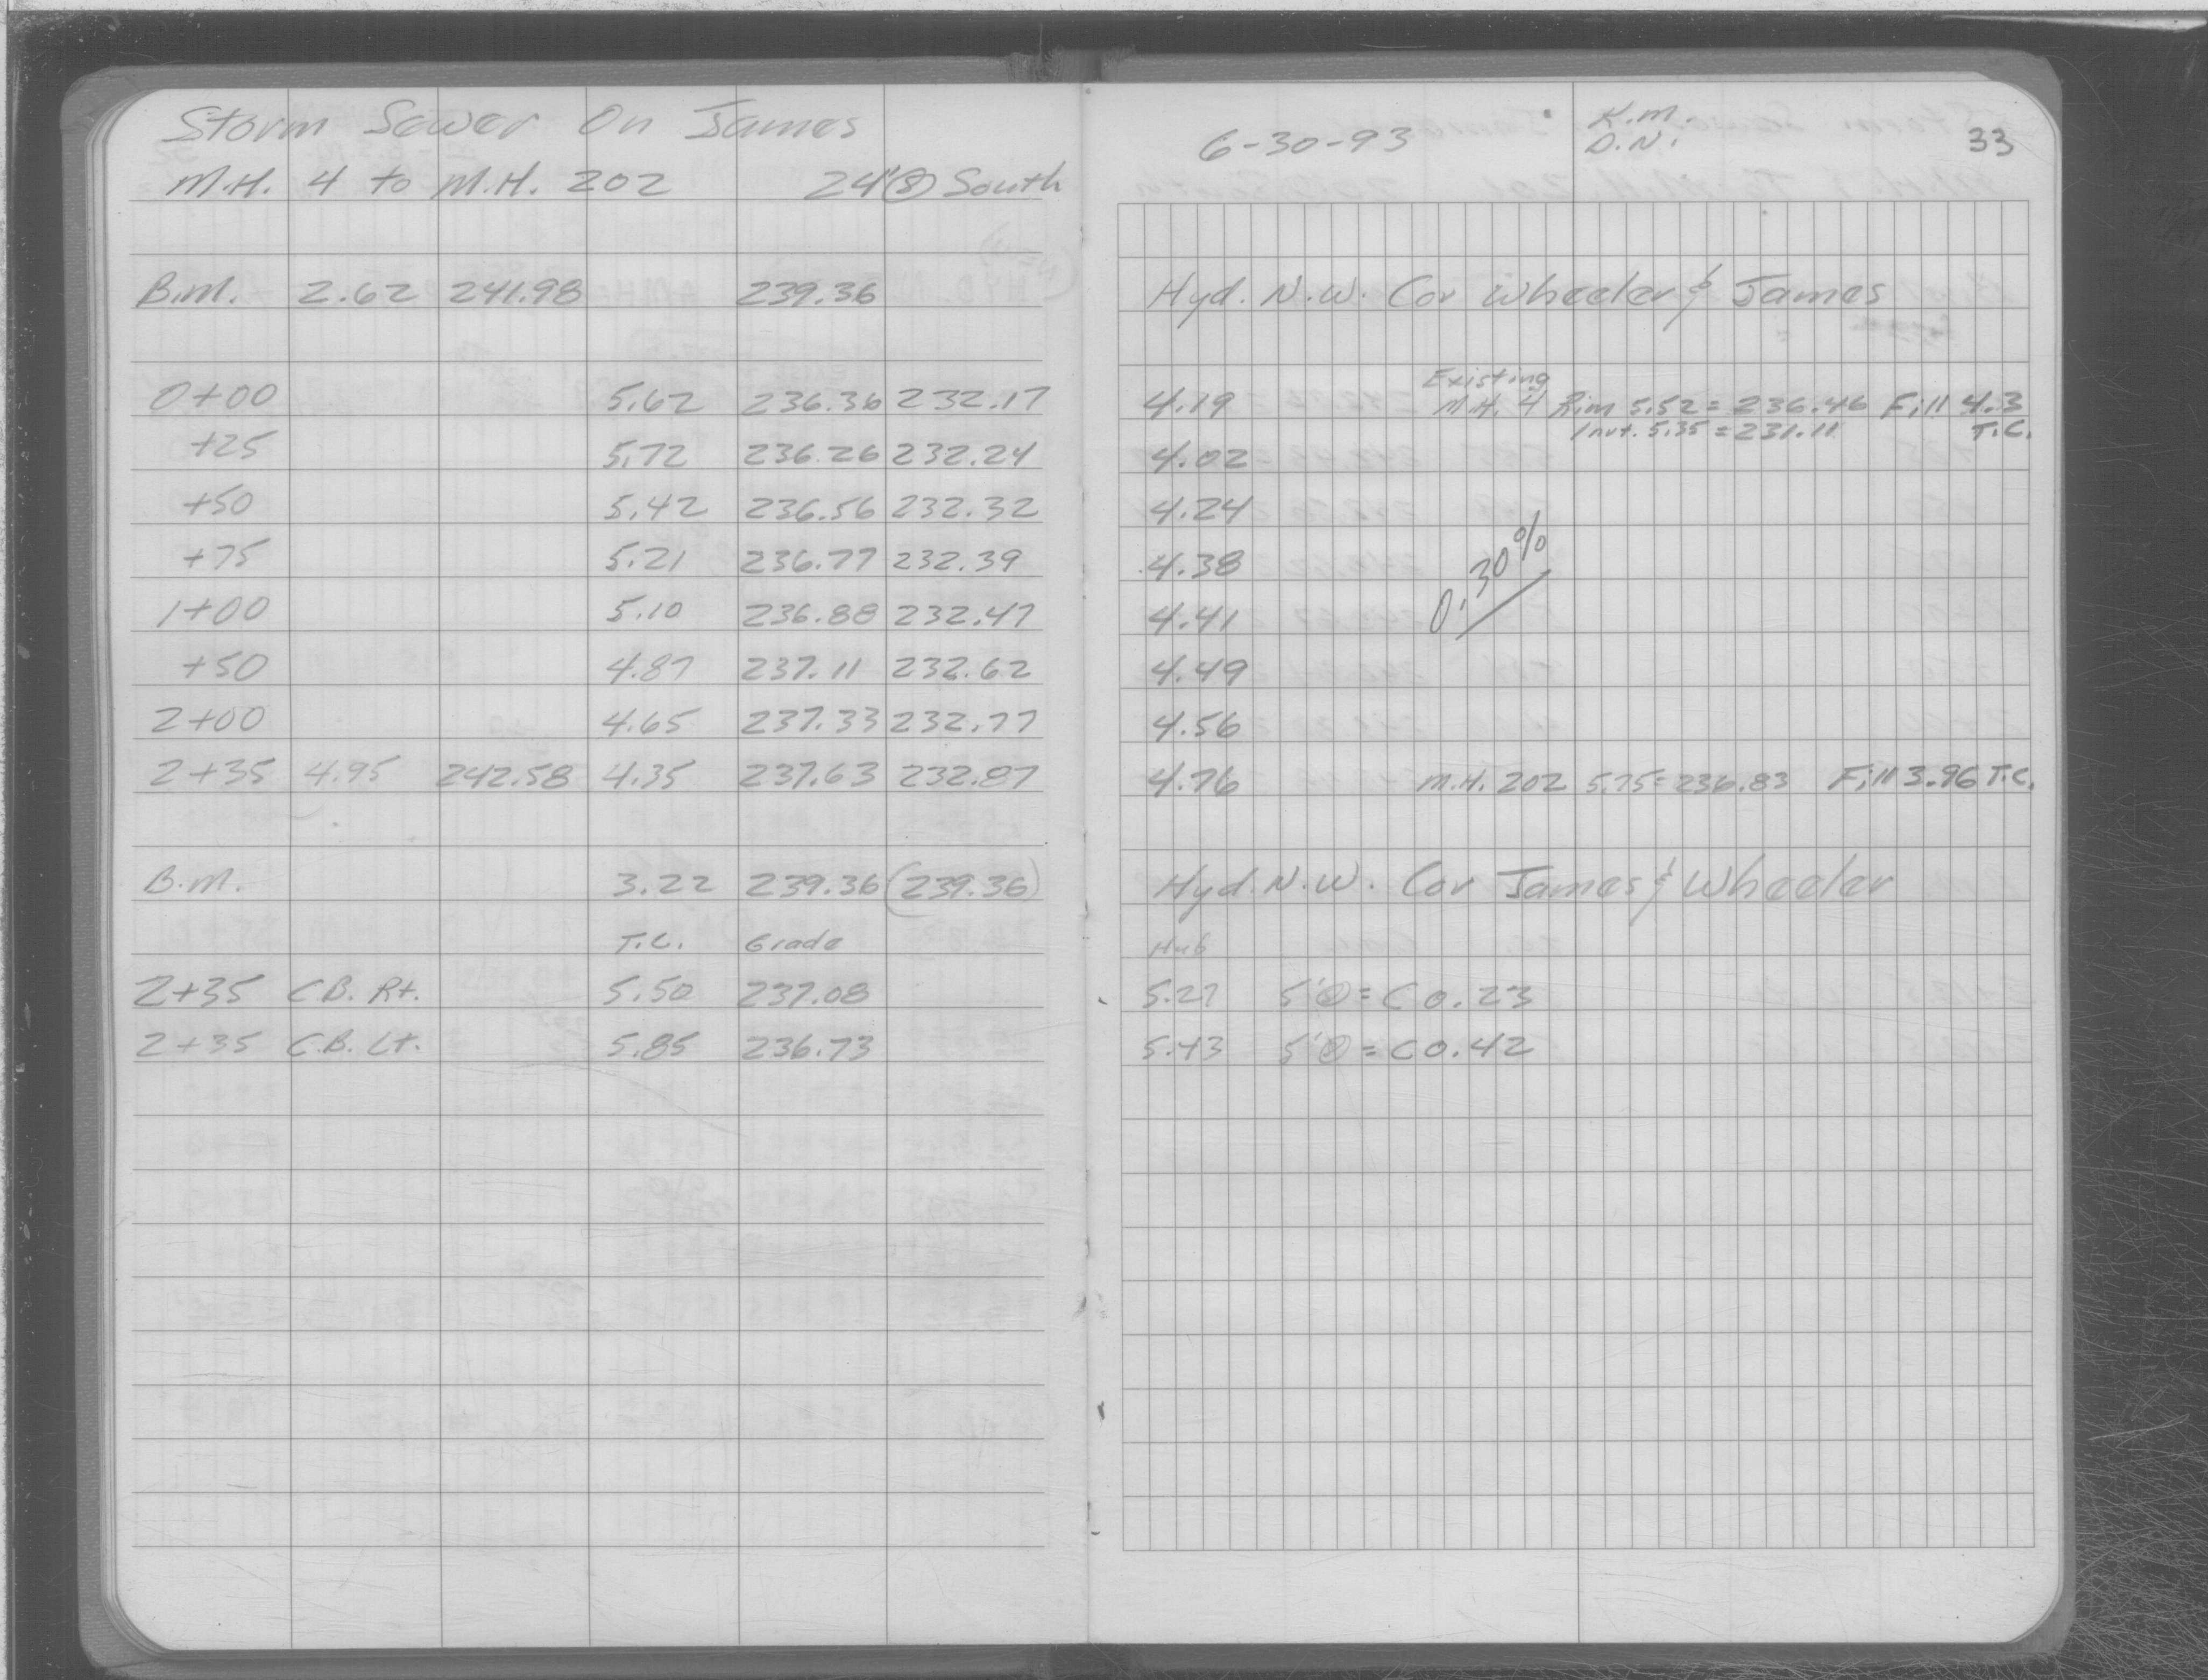 Storm Sewer On James
M.H. 4 to M.H. 202 24"(8) South
B.M. 2.62 241.98 239.36
0+00 5.62 236.36 232.17
+25 5.72 236.26 232.24
+50 5.42 236.56 232.32
+75 5.21 236.77 232.39
1+00 5.10 236.88 232.47
+50 4.87 237.11 232.62
2+00 4.65 237.33 232.77
2+35 4.95 242.58 4.35 237.63 232.87
B.M. 3.22 239.36 (239.36)
T.C. Grade
2+35 C.B. Rt. 5.50 237.08
2+35 C.B. Lt. 5.85 236.73
6-30-93 K.M.
D.N.
33
Hyd. N.W. Cor Wheeler & James
Existing
4.19 M.H. 4 Rim 5.52 = 236.46 Fill 4.3
Invt. 5.35 = 231.11 T.C.
4.02
4.24
4.38
0.30%
4.41
4.49
4.56
4.76 M.H. 202 5.75 = 236.83 Fill 3.96 T.C.
Hyd. N.W. Cor James & Wheeler
Hub
5.27 5' = C 0.23
5.43 5' = C 0.42